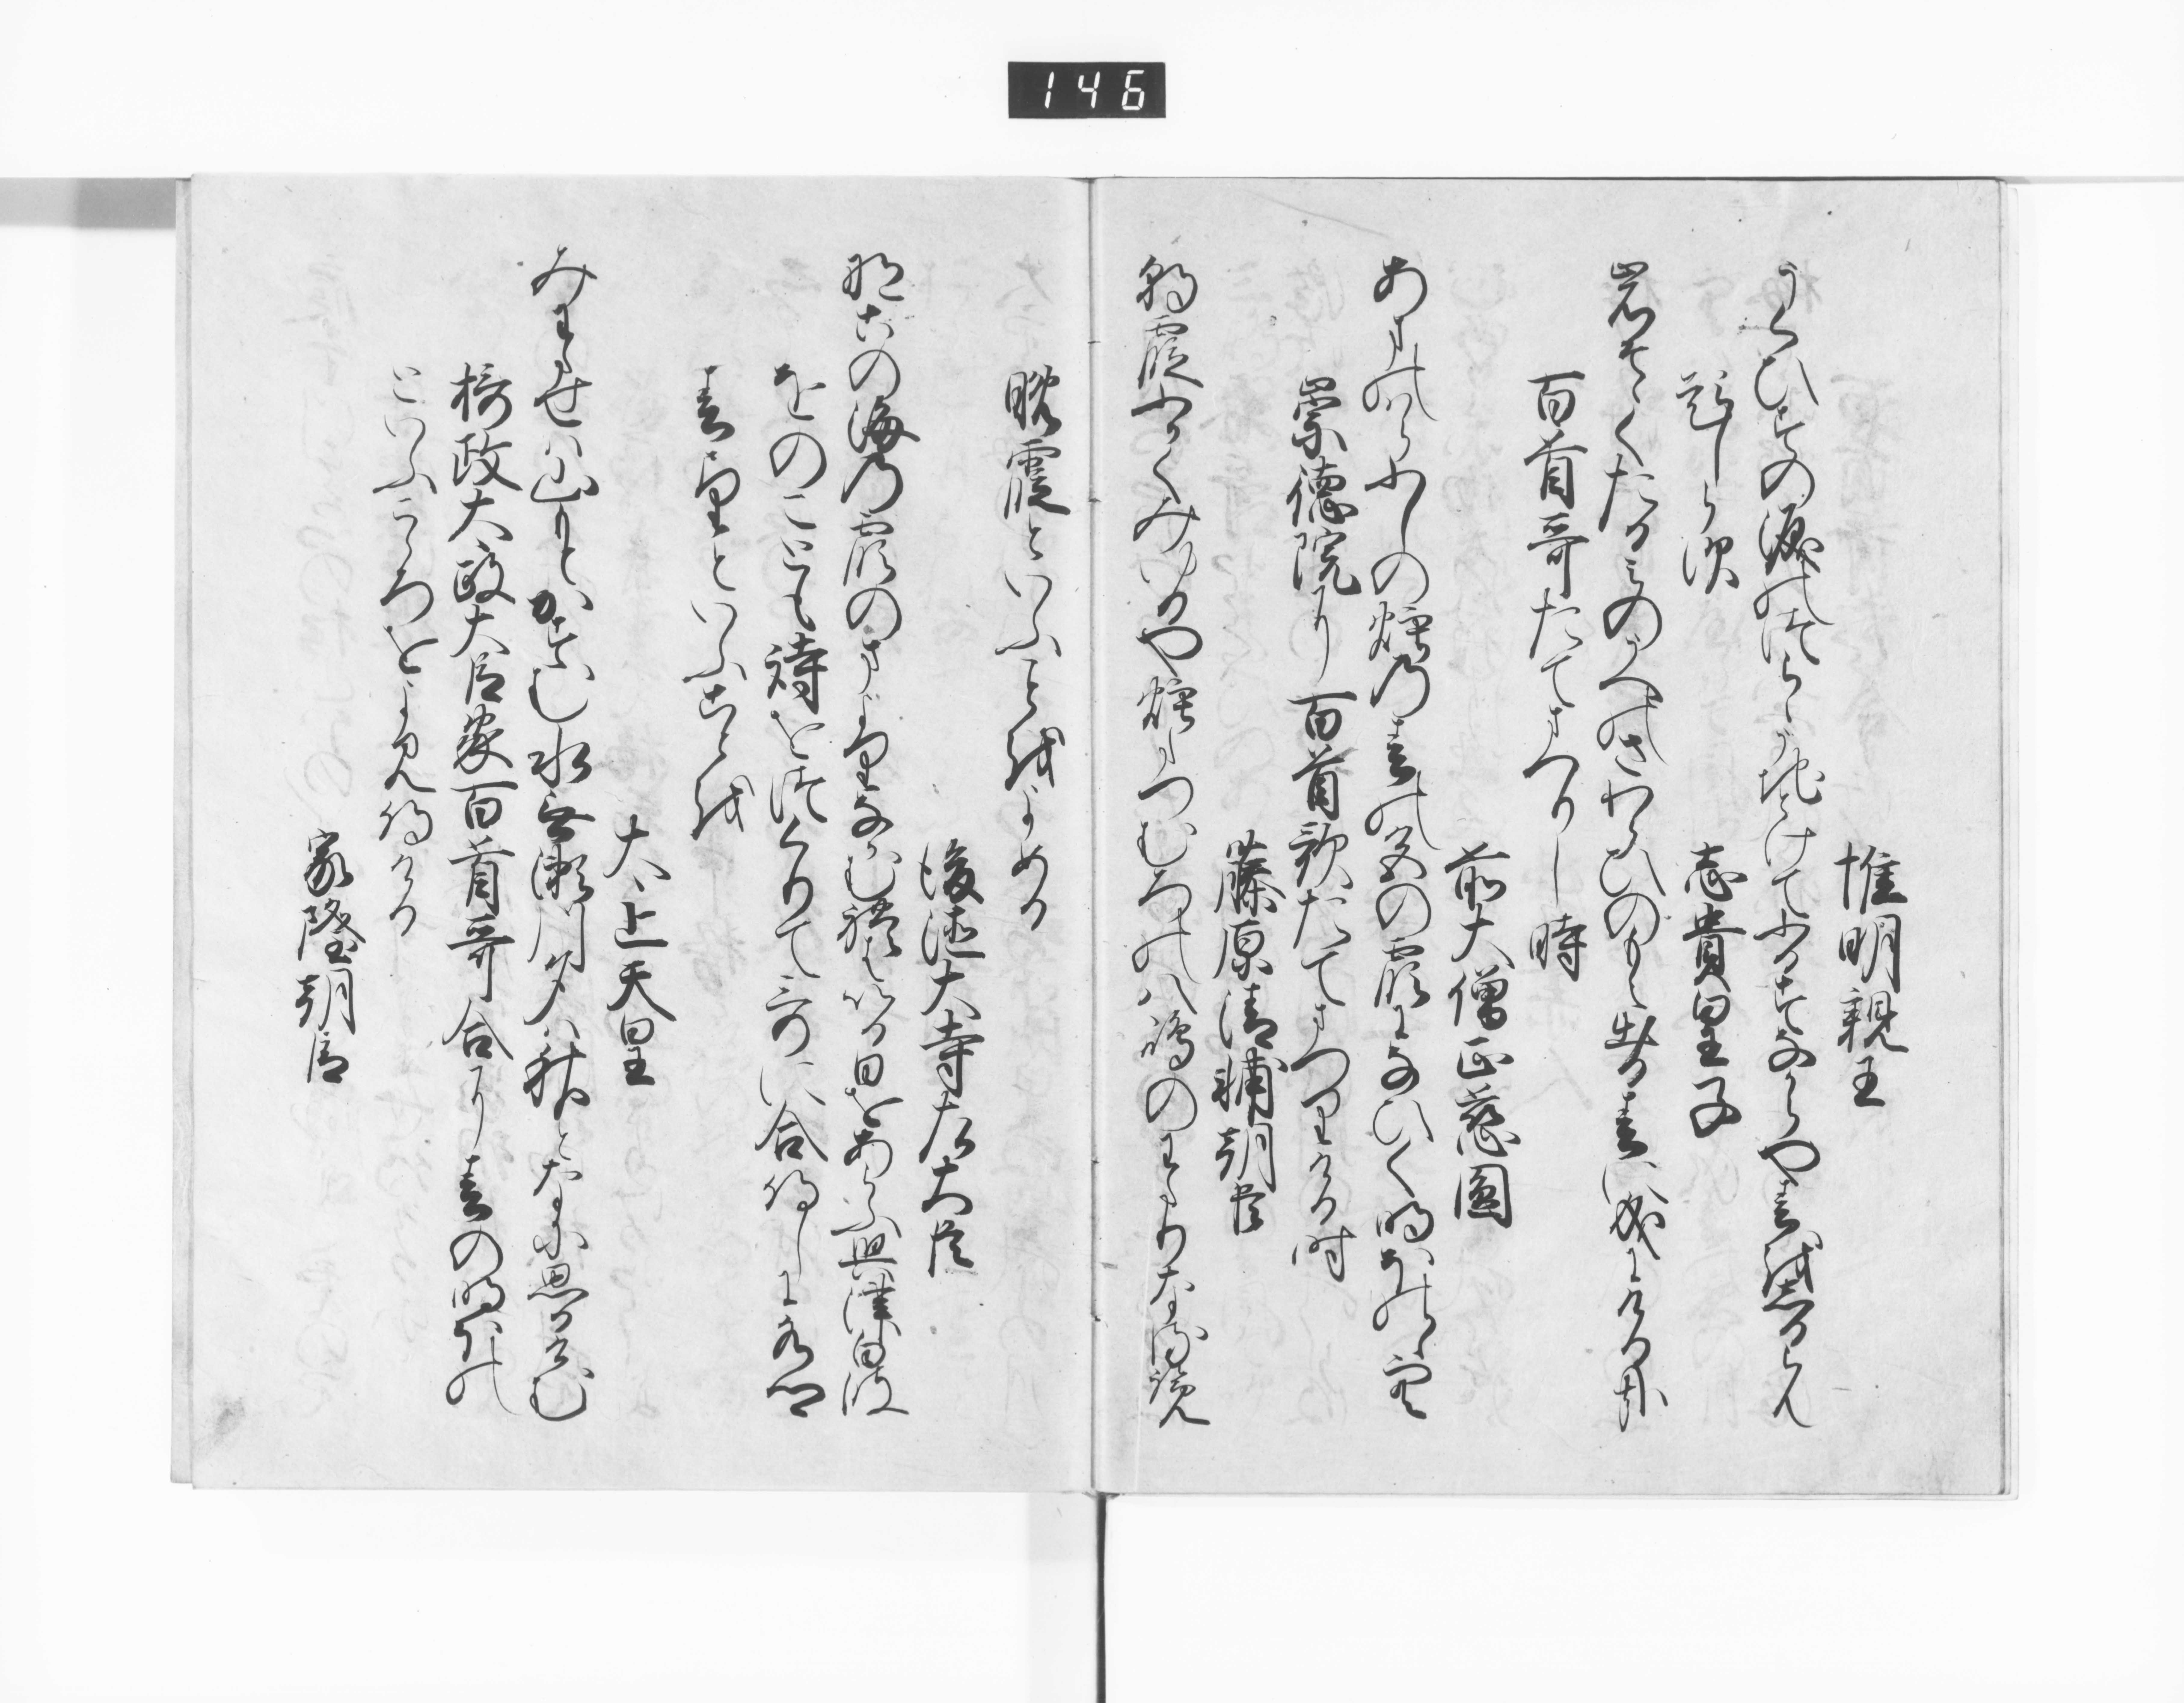 146
惟明親王
うくひすの涙のつらゝうちとけてふるすなからや春をしるらん
題しらす
志貴皇子
岩そゝくたるみのうへのさわらひのもえ出る春に成にける哉
百首哥たてまつりし時
前大僧正慈圓
あまのはらふしの煙の春の色の霞になひく明ほのゝ空
崇徳院に百首歌たてまつりける時
藤原清輔朝臣
朝霞ふかくみゆるや煙たつむろの八嶋のわたりなるらん
晩霞といふことをよめる
後徳大寺左大臣
なこの海の霞のまよりなかむれはいる日をあらふ奥津白波
をのこども詩をつくりて哥に合侍しに水郷
春望といふことを
太上天皇
みわたせは山もとかすむ水無瀬川夕は秋となに思ひけむ
摂政太政大臣家百首哥合に春の明ほの
といふこゝろをよみ侍ける
家隆朝臣